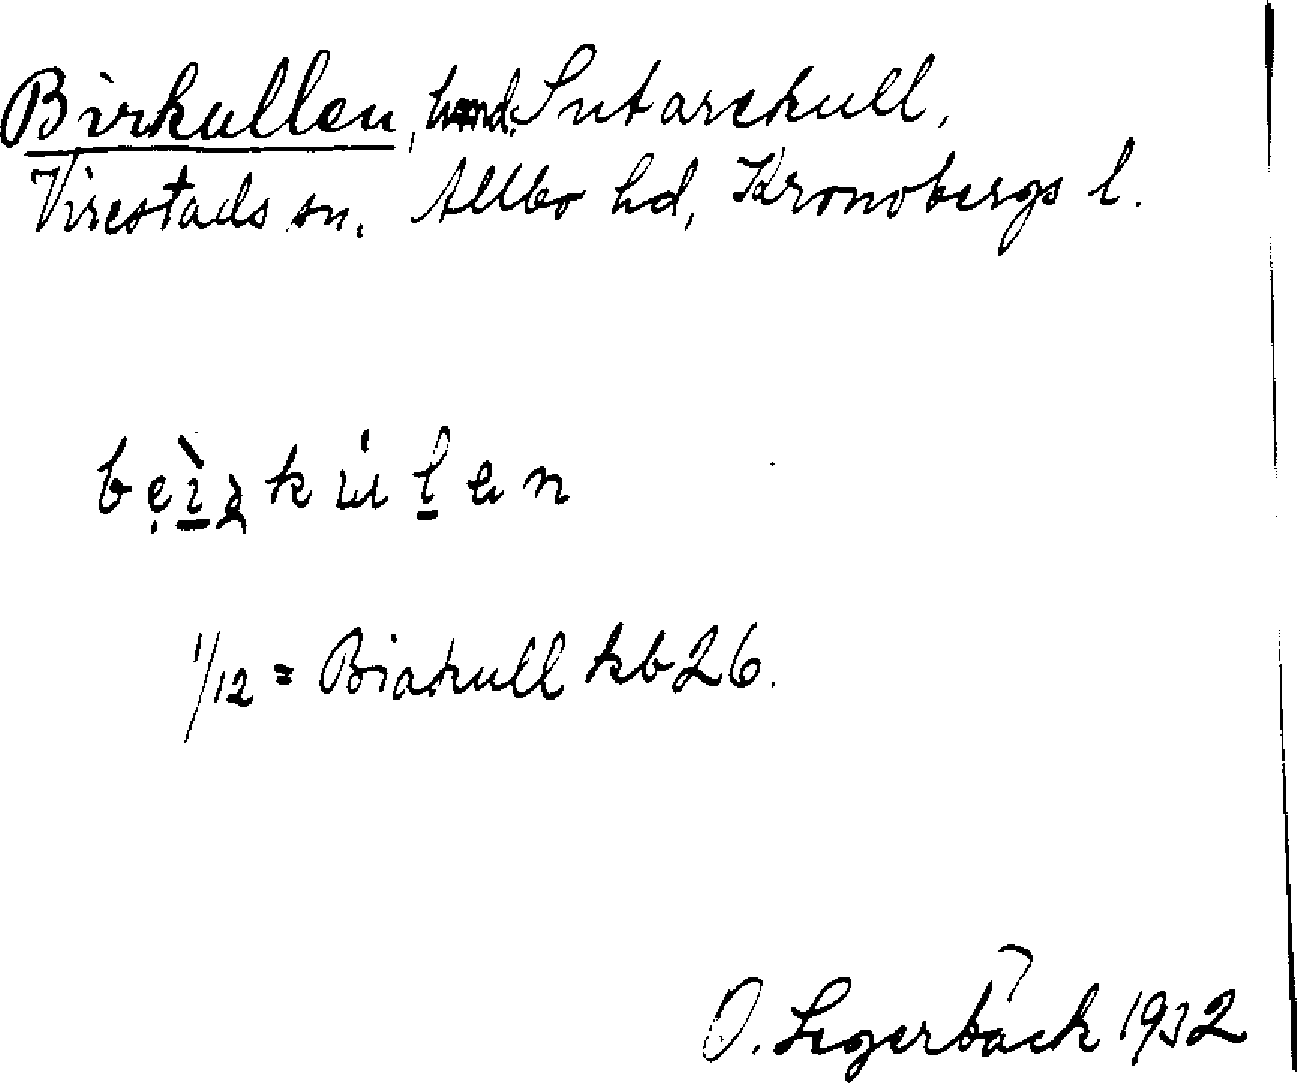 Birkullen, hmd. Sutarekull,
Virestads sn. Allbo hd, Kronobergs l.
1/12 = Biakull kb 26.
O. Segerbäck 1932